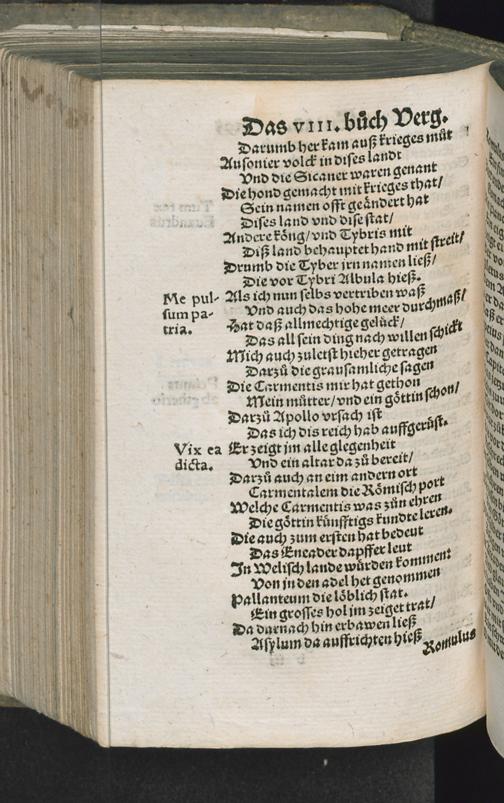 Das VIII. bůch Verg.
Darumb her kam auß krieges můt
Ausonier volck in dises landt
Vnd die Sicaner waren genant
Die hond gemacht mit krieges that/
Sein namen offt geändert hat
Dises land vnd dise stat/
Andere köng/vnd Tybris mit
Diß land behauptet hand mit streit/
Drumb die Tyber jrn namen ließ/
Die vor Tybri Albula hieß.
Me pul-
sum pa-
tria.
Als ich nun selbs vertriben waß
Vnd auch das hohe meer durchmaß/
Hat daß allmechtige gelück/
Das all sein ding nach willen schickt
Mich auch zuletst hieher getragen
Darzů die grausamliche sagen
Die Carmentis mir hat gethon
Mein můtter/vnd ein göttin schon/
Darzů Apollo vrsach ist
Das ich dis reich hab auffgerüst.
Vix ea
dicta.
Er zeigt jm alle glegenheit
Vnd ein altar dazů bereit/
Darzů auch an eim andern ort
Carmentalem die Römisch port
Welche Carmentis was zůn ehren
Die göttin künfftigs kundte leren.
Die auch zum ersten hat bedeut
Das Eneader dapffer leut
In Welisch lande würden kommen:
Von jn den adel het genommen
Pallanteum die löblich stat.
Ein grosses hol jm zeiget trat/
Da darnach hin erbawen ließ
Asylum da auffrichten hieß
Romulus